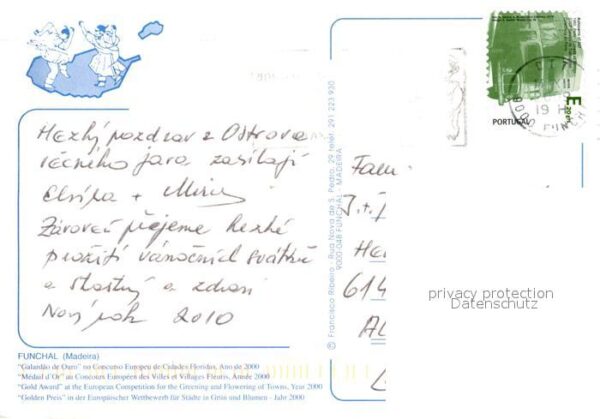 Hezký pozdrav z Ostrova
věčného jara zasílají
Elsika +
Zároveň přejeme hezké
prožití vánočních svátků
a šťastný a zdraví
Nový rok 2010
FUNCHAL (Madeira)
"Galardão de Ouro" no Concurso Europeu de Cidades Floridas, Ano de 2000
"Médaid d'Or" au Concours Européen des Villes et Villages Fleuris, Année 2000
"Gold Award" at the European Competition for the Greening and Flowering of Towns, Year 2000
"Golden Preis" in der Europäischer Wettbewerb für Städte in Grün und Blumen - Jahr 2000
© Francisco Ribeiro - Rua Nova de S. Pedro, 29 Telef. 291 223 930
9000-048 FUNCHAL - MADEIRA
E
20g
PORTUGAL
19
FUNCH
J.+J
He
614
privacy protection
Datenschutz